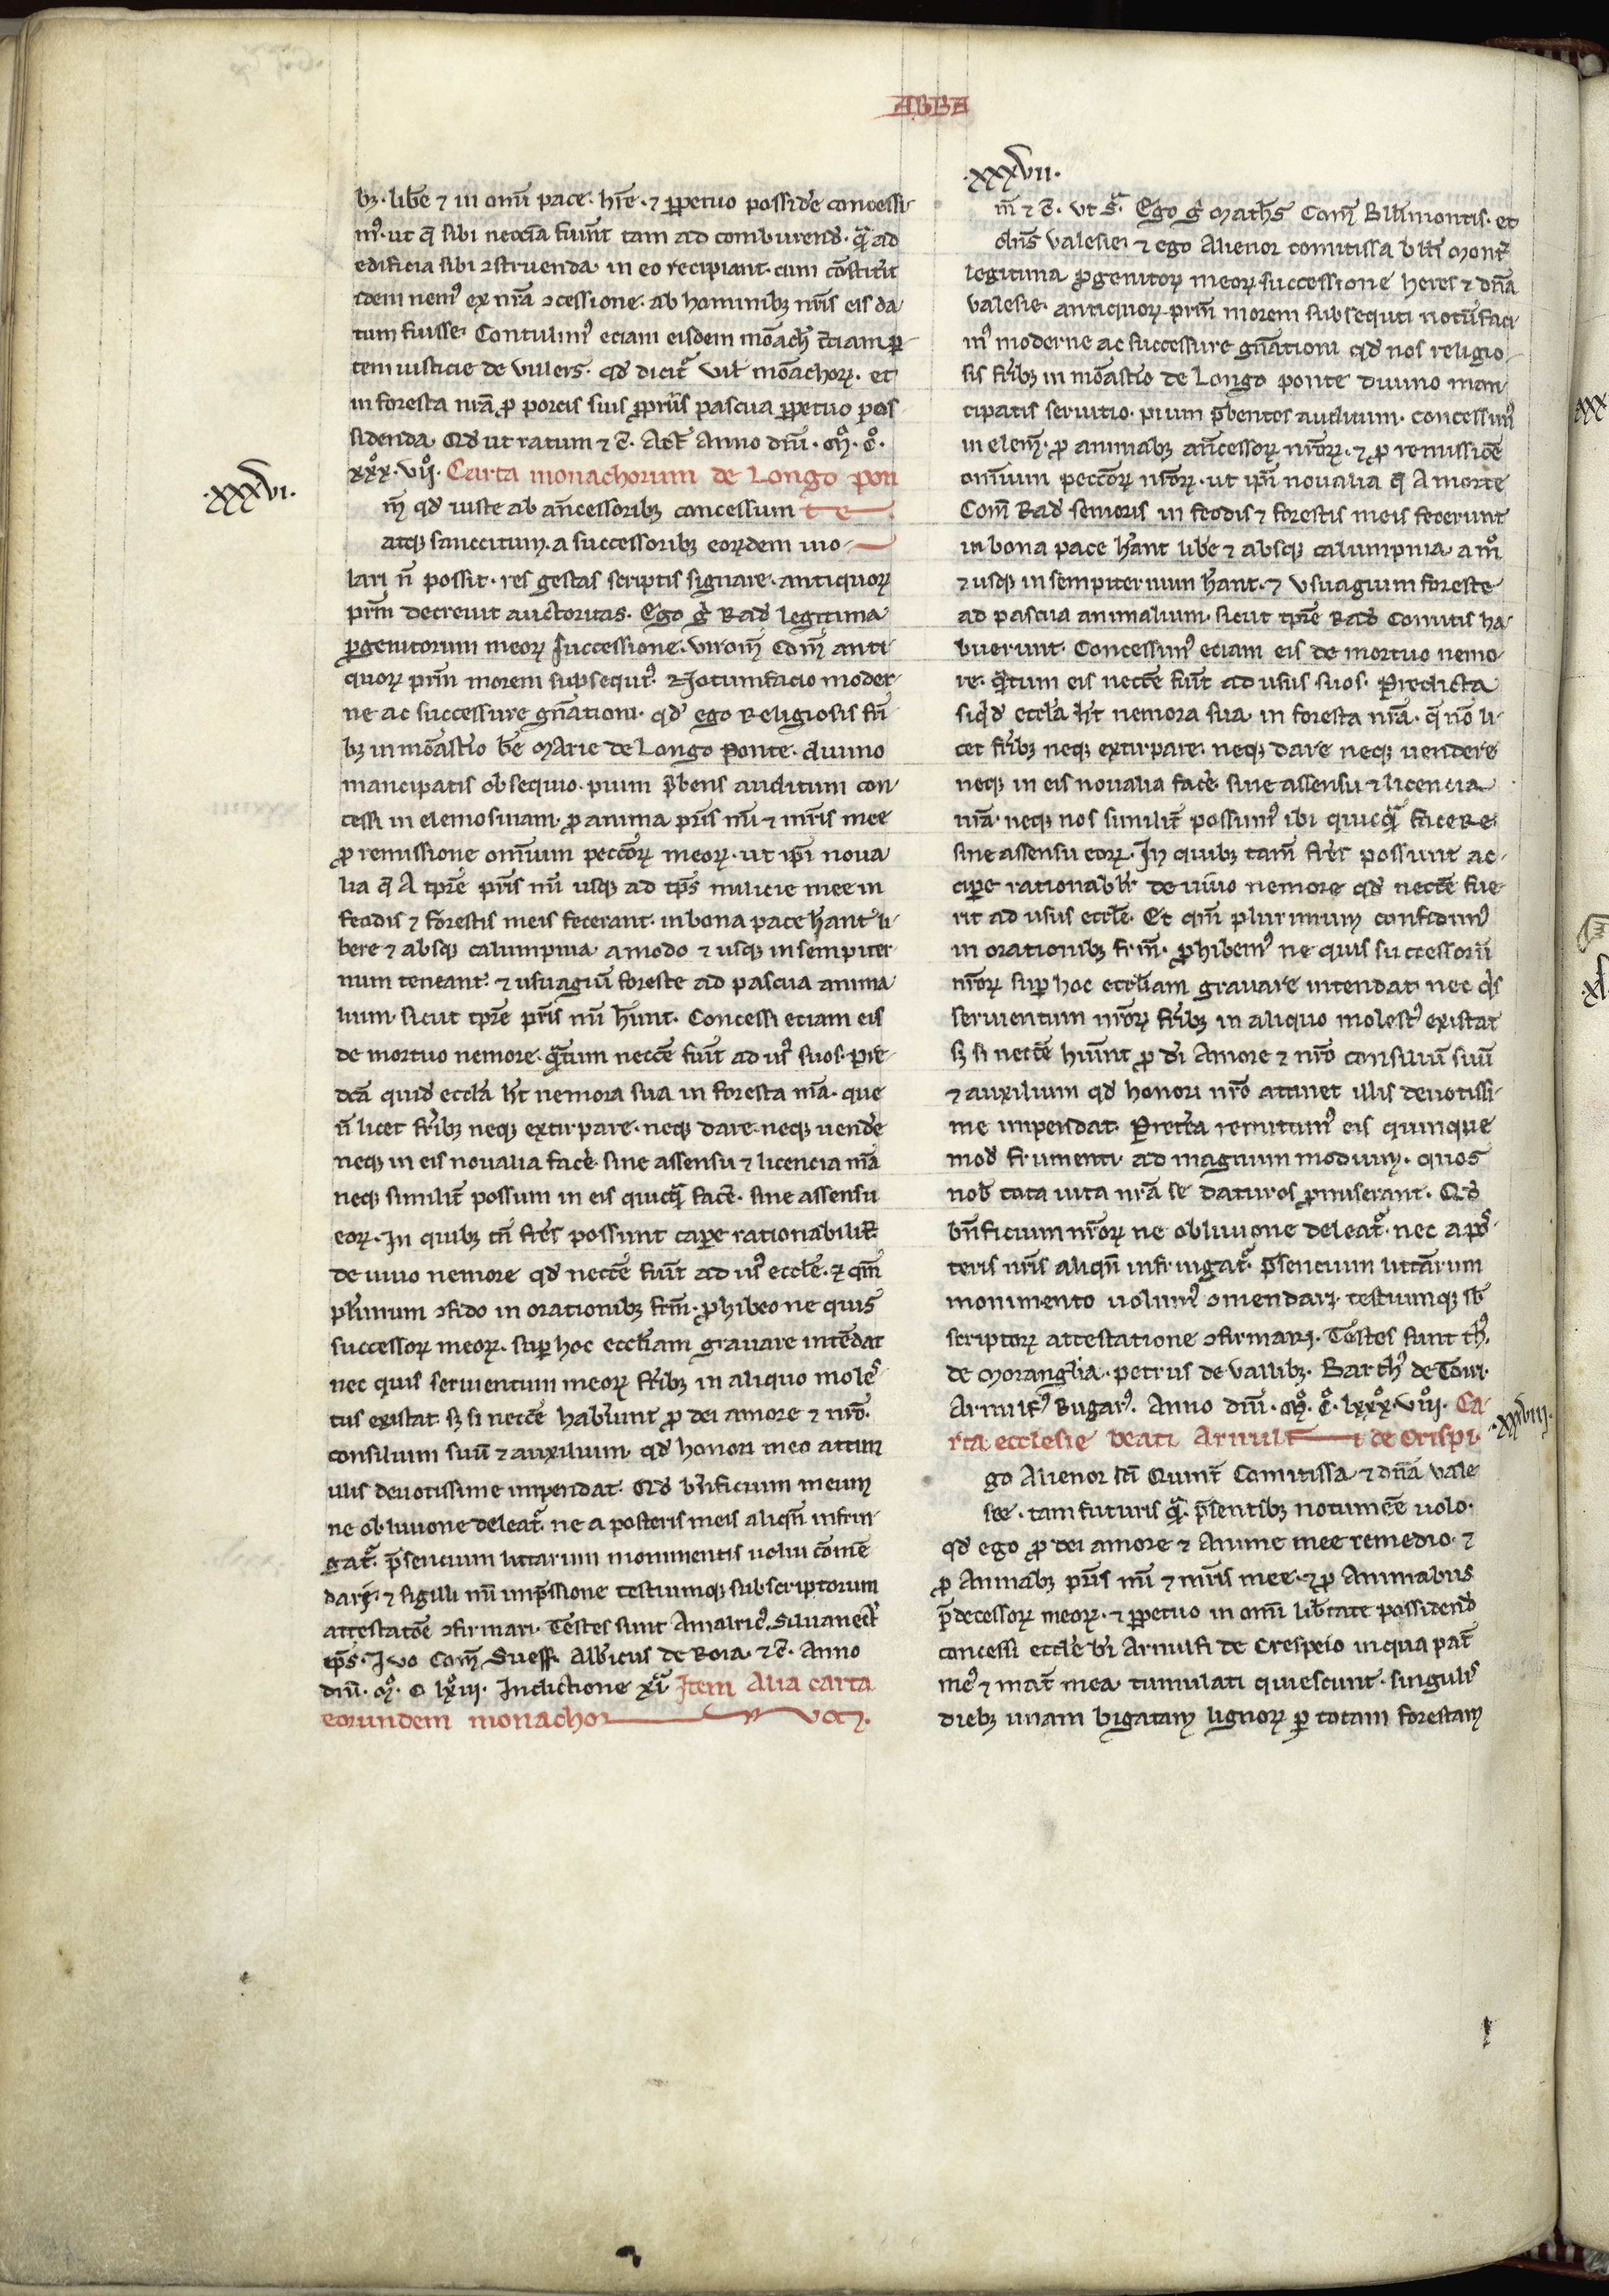 ABBA
bꝫ. libe ⁊ in om̄i pace. hr̄e. ⁊ ꝑpetuo possidere concessi
mꝰ. ut q̄ sibi necc̄ia fuerint tam ad comburend. quā ad
edificia sibi ꝯstruenda in eo recipiant. cum cōstiterit
idem nemꝰ ex nr̄a ꝯcessione. ab hominibꝫ nr̄is eis da
tum fuisse. Contulimꝰ eciam eisdem mōach t̄ciam ꝑ
tem iusticie de Vilers. qd̄ dicit Vil mōachoꝝ. et
in foresta nr̄a ꝓ porcis suis ꝓpriis pascua ꝑpetuo pos
sidenda. Qd̄ ut ratum ⁊ c̄. Act̄ Anno dn̄i. M̊. C̊.
xxx̊. vii̊. Carta monachorum de Longo pon
te
.xxxvi.
m̄ qd̄ iuste ab an̄cessoribꝫ concessum
atqꝫ sanccitum. a successoribꝫ eoꝝdem uio
lari n̄ possit. res gestas scriptis signare. antiquoꝝ
pr̄m decreuit auctoritas. Ego g̊ Rad legitima
ꝓgenitorum meoꝝ successione. Virom̄ Com̄ anti
quoꝝ pr̄m morem subsequtꝰ. Notum facio moder
ne ac successure gn̄ationi. qd̄ ego Religiosis fr̄i
bꝫ in mōastio be Marie de Longo Ponte. diuino
mancipatis obsequio. pium p̄bens auditum con
cessi in elemosinam. ꝓ anima pr̄is mi ⁊ mr̄is mee
ꝓ remissione omium pecc̄oꝝ meoꝝ. ut ip̄i noua
lia q̄ A tpr̄e pr̄is mi usqꝫ ad tp̄s milicie mee in
feodis ⁊ forestis meis fecerant. in bona pace hant li
bere ⁊ absqꝫ calumpnia amodo ⁊ usqꝫ in sempiter
num teneant. ⁊ usuagiū foreste ad pascua anima
lium. sicut tpr̄e pr̄is mi hūnt. Concessi eciam eis
de mortuo nemore. quātum necc̄e fuit̄ ad usꝰ suos. Pre
dc̄a quid eccla ht̄ nemora sua in foresta mea. que
n̄ licet fr̄ibꝫ neqꝫ extirpare. neqꝫ dare. neqꝫ uende
neqꝫ in eis noualia face. sine assensu ⁊ licencia mea
neqꝫ similit̄ possum in eis quicquā face. sine assensu
eoꝝ. In quibꝫ tn̄ fr̄es possunt cape rationabilit̄
de uiuo nemore qd̄ necc̄e fuit̄ ad usꝰ eccle. ⁊ qm̄
plimum ꝯfido in orationibꝫ frm̄. ꝓhibeo ne quis
successoꝝ meoꝝ. suꝑ hoc eccliam grauare intēdat
nec quis seruientum meoꝝ fr̄ibꝫ in aliquo moles
tus existat. sꝫ si necc̄e habuint ꝓ dei amore ⁊ nr̄o.
consilium suū ⁊ auxilium qd̄ honori meo attinet
illis deuotissime impendat. Qd̄ bn̄ficium meum
ne obliuione deleat̄. ne a posteris meis aliqn̄ infrin
gat̄. p̄sencium litt̄arum monimentis uolui cōme
dari. ⁊ sigilli mi imp̄ssione testiumqꝫ subscriptorum
attestatōe ꝯfirmari. Testes sunt Amalricꝰ Siluanect̄
ep̄s. Iuo Com̄ Suess. Albicus de Roia. ⁊ c̄. Anno
dn̄i. M̊. C̊ lx̊iii. Indictione xi. Item Alia carta
eorundem monachor u oꝝ.
.xxxvii.
m̄ ⁊ c̄. Vt s̄. Ego g̊ Mathˢ Com̄ Bllimontis. et
dn̄s Valesie. ⁊ ego Alienor comitissa blli Mont̄
legitima ꝓgenitoꝝ meoꝝ successione heres ⁊ dn̄a
Valesie. antiquoꝝ pr̄m morem subsequti notū faci
mꝰ moderne ac successure gn̄ationi qd̄ nos religio
sis fr̄ibꝫ in mōastio de Longo ponte diuino man
cipatis seruitio. pium p̄bentes auditum. concessimꝰ
in elem̄. ꝓ animabꝫ an̄cessoꝝ nr̄oꝝ. ⁊ ꝓ remissiōe
omium pecc̄oꝝ nr̄oꝝ. ut ip̄i noualia q̄ A morte
Com̄ Rad senioris in feodis ⁊ forestis meis fecerunt
in bona pace hant libe ⁊ absqꝫ calumpnia a mō
⁊ usqꝫ in sempiternum hant. ⁊ Vsuagium foreste
ad pascua animalium. sicut tpr̄e Rad Comitis ha
buerunt. Concessimꝰ eciam eis de mortuo nemo
re. quātum eis necc̄e fuit̄ ad usus suos. Predicta
siqid eccla ht̄ nemora sua in foresta nr̄a. q̄ nō li
cet fr̄ibꝫ neqꝫ extirpare. neqꝫ dare neqꝫ uendere
neqꝫ in eis noualia face. sine assensu ⁊ licencia
nr̄a. neqꝫ nos similit̄ possumꝰ ibi quicquā facere.
sine assensu eoꝝ. In quibꝫ tam̄ fr̄es possunt ac
cipe rationabilr̄ de uiuo nemore qd̄ necc̄e fue
rit ad usus eccle. Et qm̄ plurimum confidimꝰ
in orationibꝫ frm̄. ꝓhibemꝰ ne quis successorū
nr̄oꝝ suꝑ hoc eccliam grauare intendat nec qis
seruientum nr̄oꝝ fr̄ibꝫ in aliquo molestꝰ existat
sꝫ si necc̄e hiūnt ꝓ di Amore ⁊ nr̄o consiliū suū
⁊ auxilium qd̄ honori nr̄o attinet illis deuotissi
me impendat. Preterea remitimꝰ eis quinque
mod frumenti ad magnum modium. quos
nob tota uita nr̄a se daturos ꝓmiserant. Qd̄
bn̄ficium nr̄oꝝ ne obliuione deleat̄. nec a pos
teris nr̄is aliqn̄ infringat̄. p̄sencium litt̄arum
monimento uolumꝰ ꝯmendari. testiumqꝫ sb
scriptoꝝ attestatione ꝯfirmari. Testes sunt th.
de Moranglia. petrus de Vallibꝫ. Barthꝰ de Toiri.
Arnulfꝰ Bugarꝰ. Anno dn̄i. M̊. C̊. lxxx̊. vii̊. Ca
rta ecclesie beati Arnulf i de Crispi.
.xxxviii.
go Alienor sc̄i Quint̄ Comitissa ⁊ dn̄a Vale
sie. tam futuris quā p̄sentibꝫ notum ee uolo.
qd̄ ego ꝓ dei amore ⁊ Anime mee remedio. ⁊
ꝓ Animabꝫ pr̄is mi ⁊ mr̄is mee. ⁊ ꝓ Animabus
p̄decessoꝝ meoꝝ. ⁊ ꝑpetuo in om̄i lib̄tate possidend
concessi eccle bi Arnulfi de Crespeio in qua pat̄
meꝰ ⁊ mat̄ mea tumulati quiescunt. singulis
diebꝫ unam bigatam lignoꝝ ꝑ totam forestam